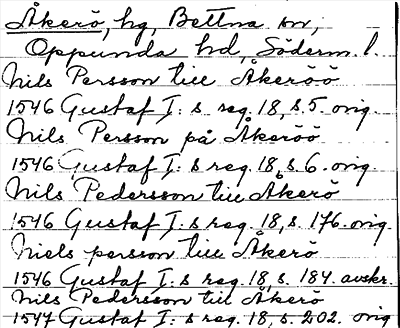 Åkerö, hg, Bettna sn,
Oppunda hd, Söderm. l.
Nils Persson till Åkeröö
1546 Gustaf I:s reg. 18, s. 5. orig.
Nils Persson på Åkeröö
1546 Gustaf I:s reg. 18, s. 6. orig.
Nils Pedersson till Åkerö
1546 Gustaf I:s reg. 18, s. 176. orig.
Niels persson till Åkerö
1546 Gustaf I:s reg. 18, s. 184. avskr.
Nils Pedersson till Åkerö
1547 Gustaf I:s reg. 18, s. 202. orig